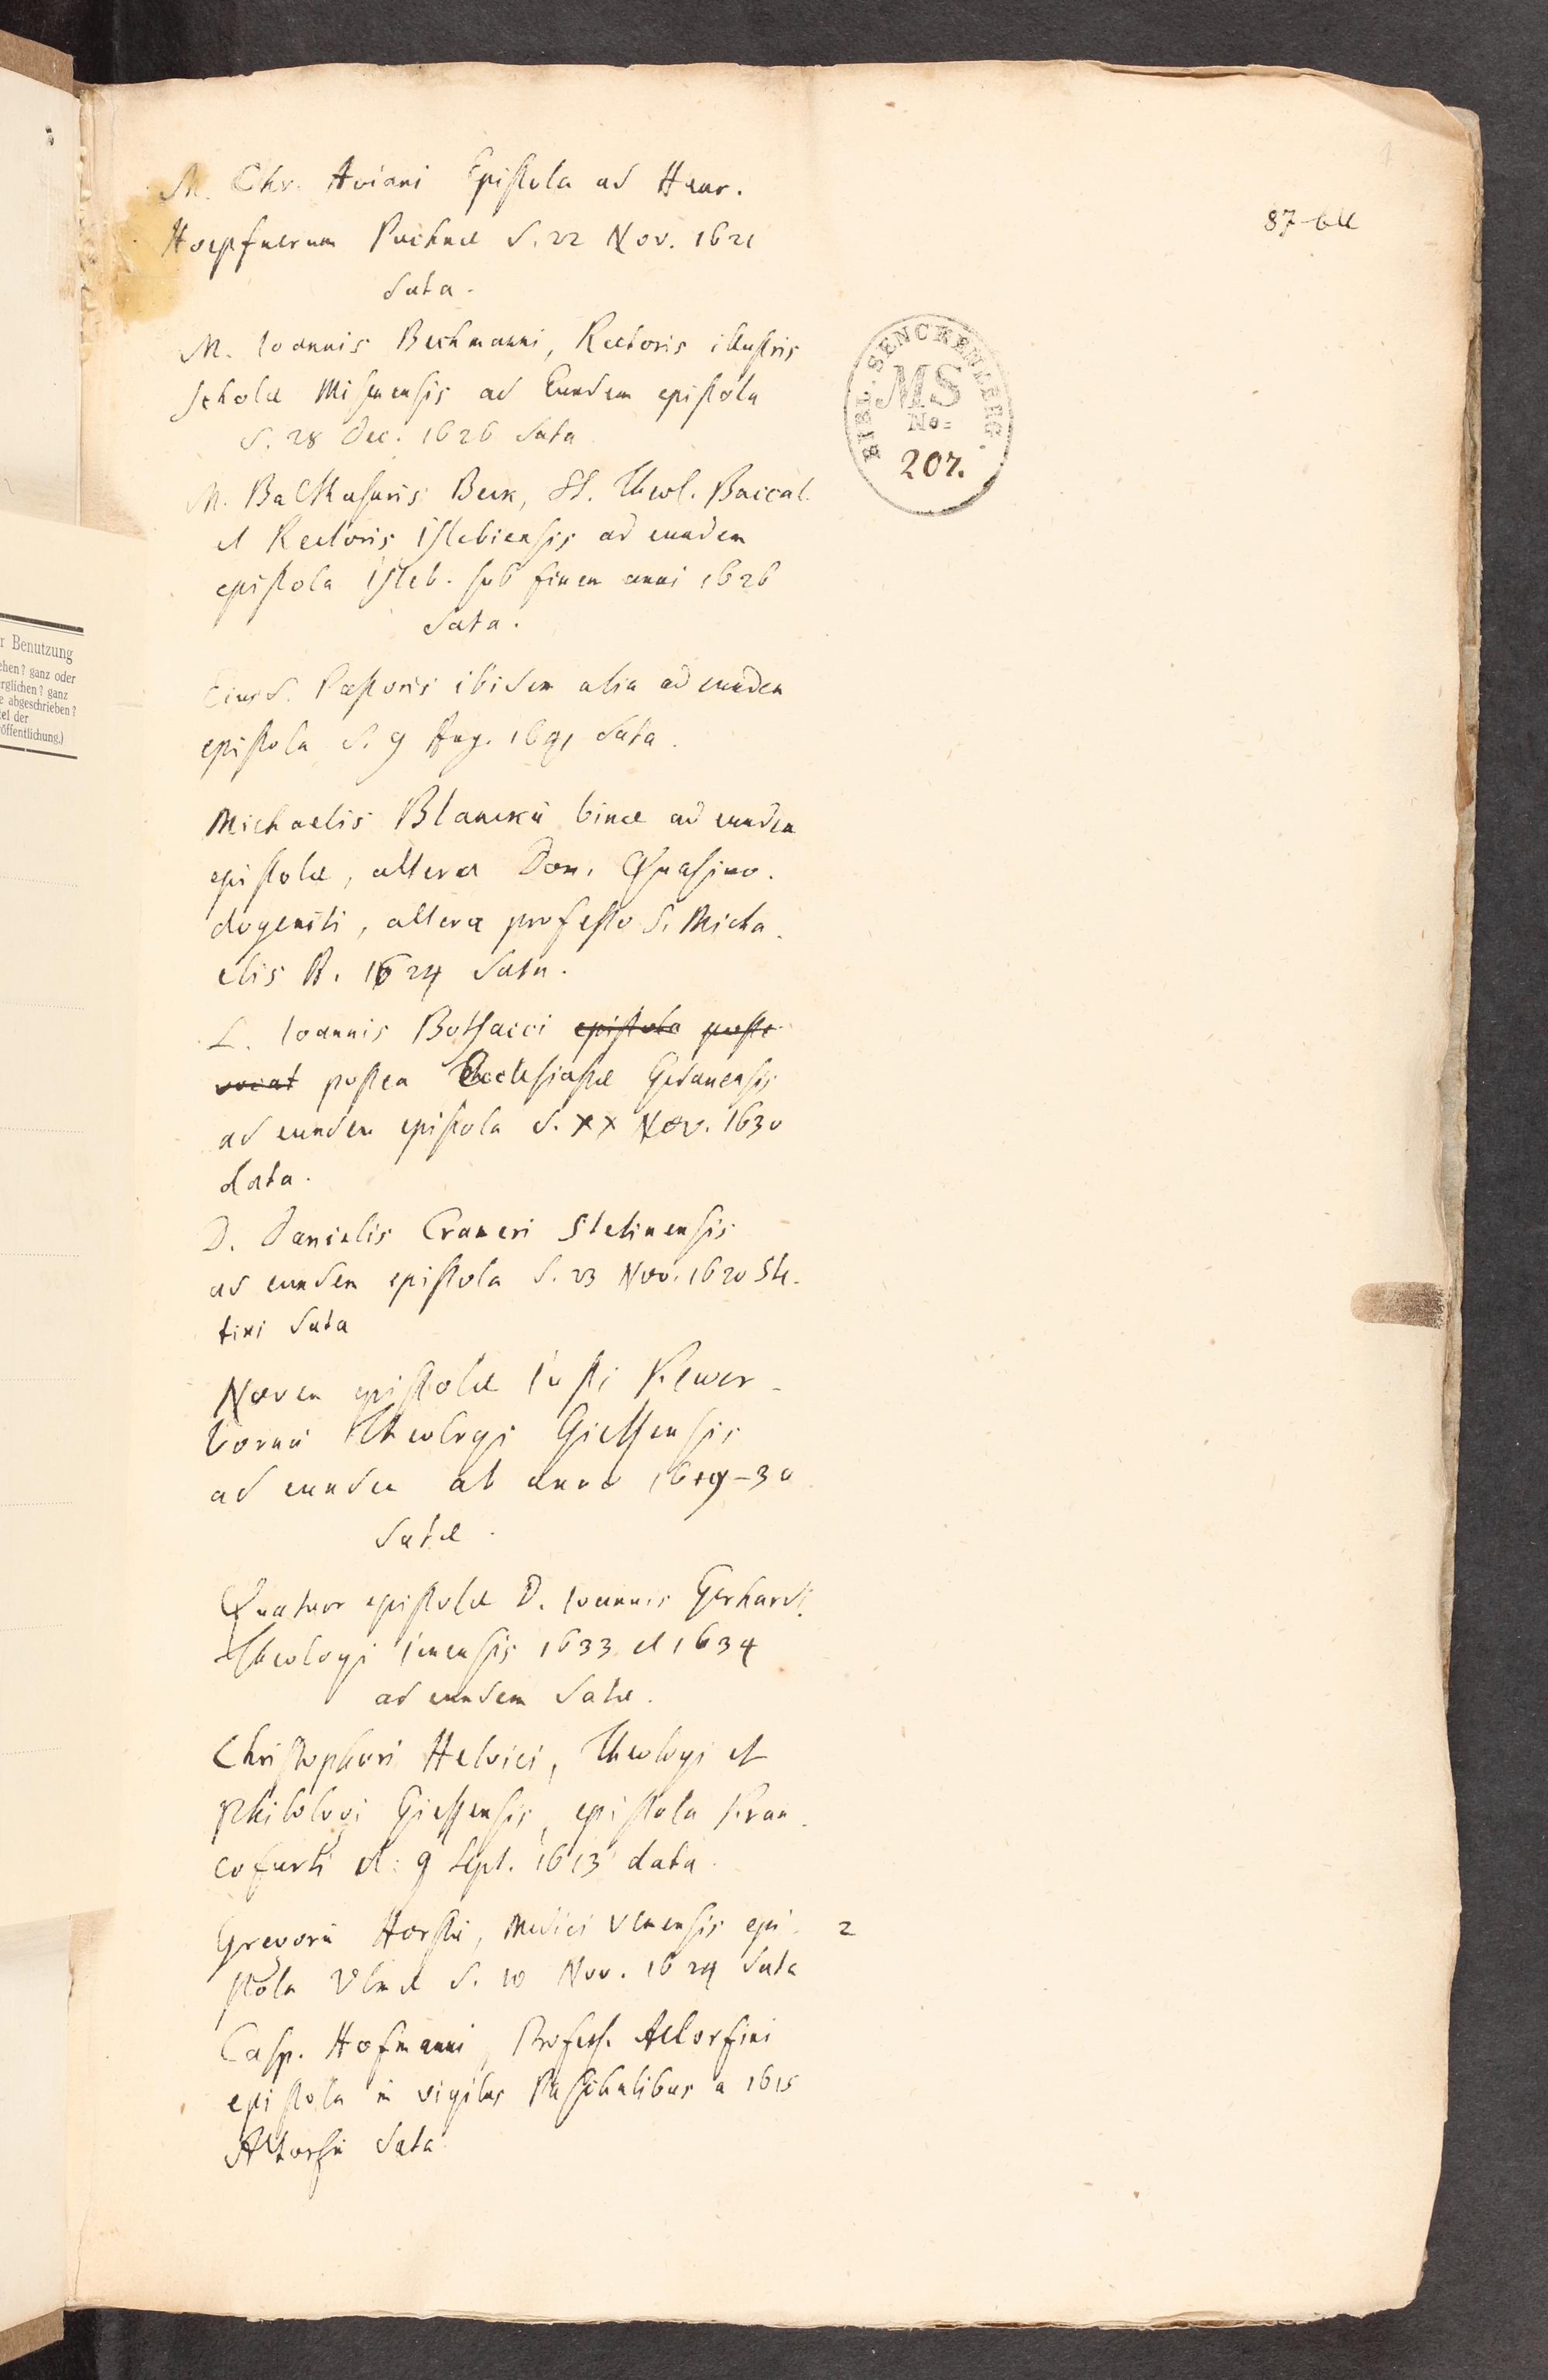 M. Chr. Aviani Epistola ad Henr.
Hoepfnerum d. 22 Nov. 1621
data.
M. Ioannis Bechmanni, Rectoris illustris
scholæ Misnensis ad Eundem epistola
d. 28 Dec. 1626 data
M. Balthasaris Beck, SS. Theol. Baccal.
et Rectoris Islebiensis ad eundem
epistola Isleb. sub finem anni 1626
data.
Eiusd. Pastoris ibidem alia ad eundem
epistola d. 9 Aug. data.
Michaelis Blanckii binæ ad eundem
epistolæ, altera Dom. Quasimo-
dogeniti, altera profesto S. Micha-
elis A. 1624 data.
L. Ioannis Botsacci epistola
postea Ecclesiastæ Gedanensis
ad eundem epistola d. XX Nov. 1630
data.
D. Danielis Crameri Stetinensis
ad eundem epistola d. 23 Nov. 1620 Ste-
tini data
Novem epistolæ Iusti Fewer-
bornii Theologi Giessensis
ad eundem ab anno 1619-30
datæ.
Quatuor epistolæ D. Ioannis Gerhardi
Theologi Ienensis 1633 et 1634
ad eundem datæ.
Christophori Helvici, Theologi et
Philologi Giessensis, epistola Fran-
cofurti d. 9 Sept. 1613 data.
Gregorii Horstii, Medici Vlmensis epi- 2
stola Vlmæ d. 10 Nov. 1624 data
Casp. Hofmanni, Profess. Altorfini
epistola in vigiliis Paschalibus a 1615
Altorfii data
1
BIBL. SENCKENBERG.
MS
No=
207.
r Benutzung
ehen? ganz oder
erglichen? ganz
e abgeschrieben?
tel der
öffentlichung.)